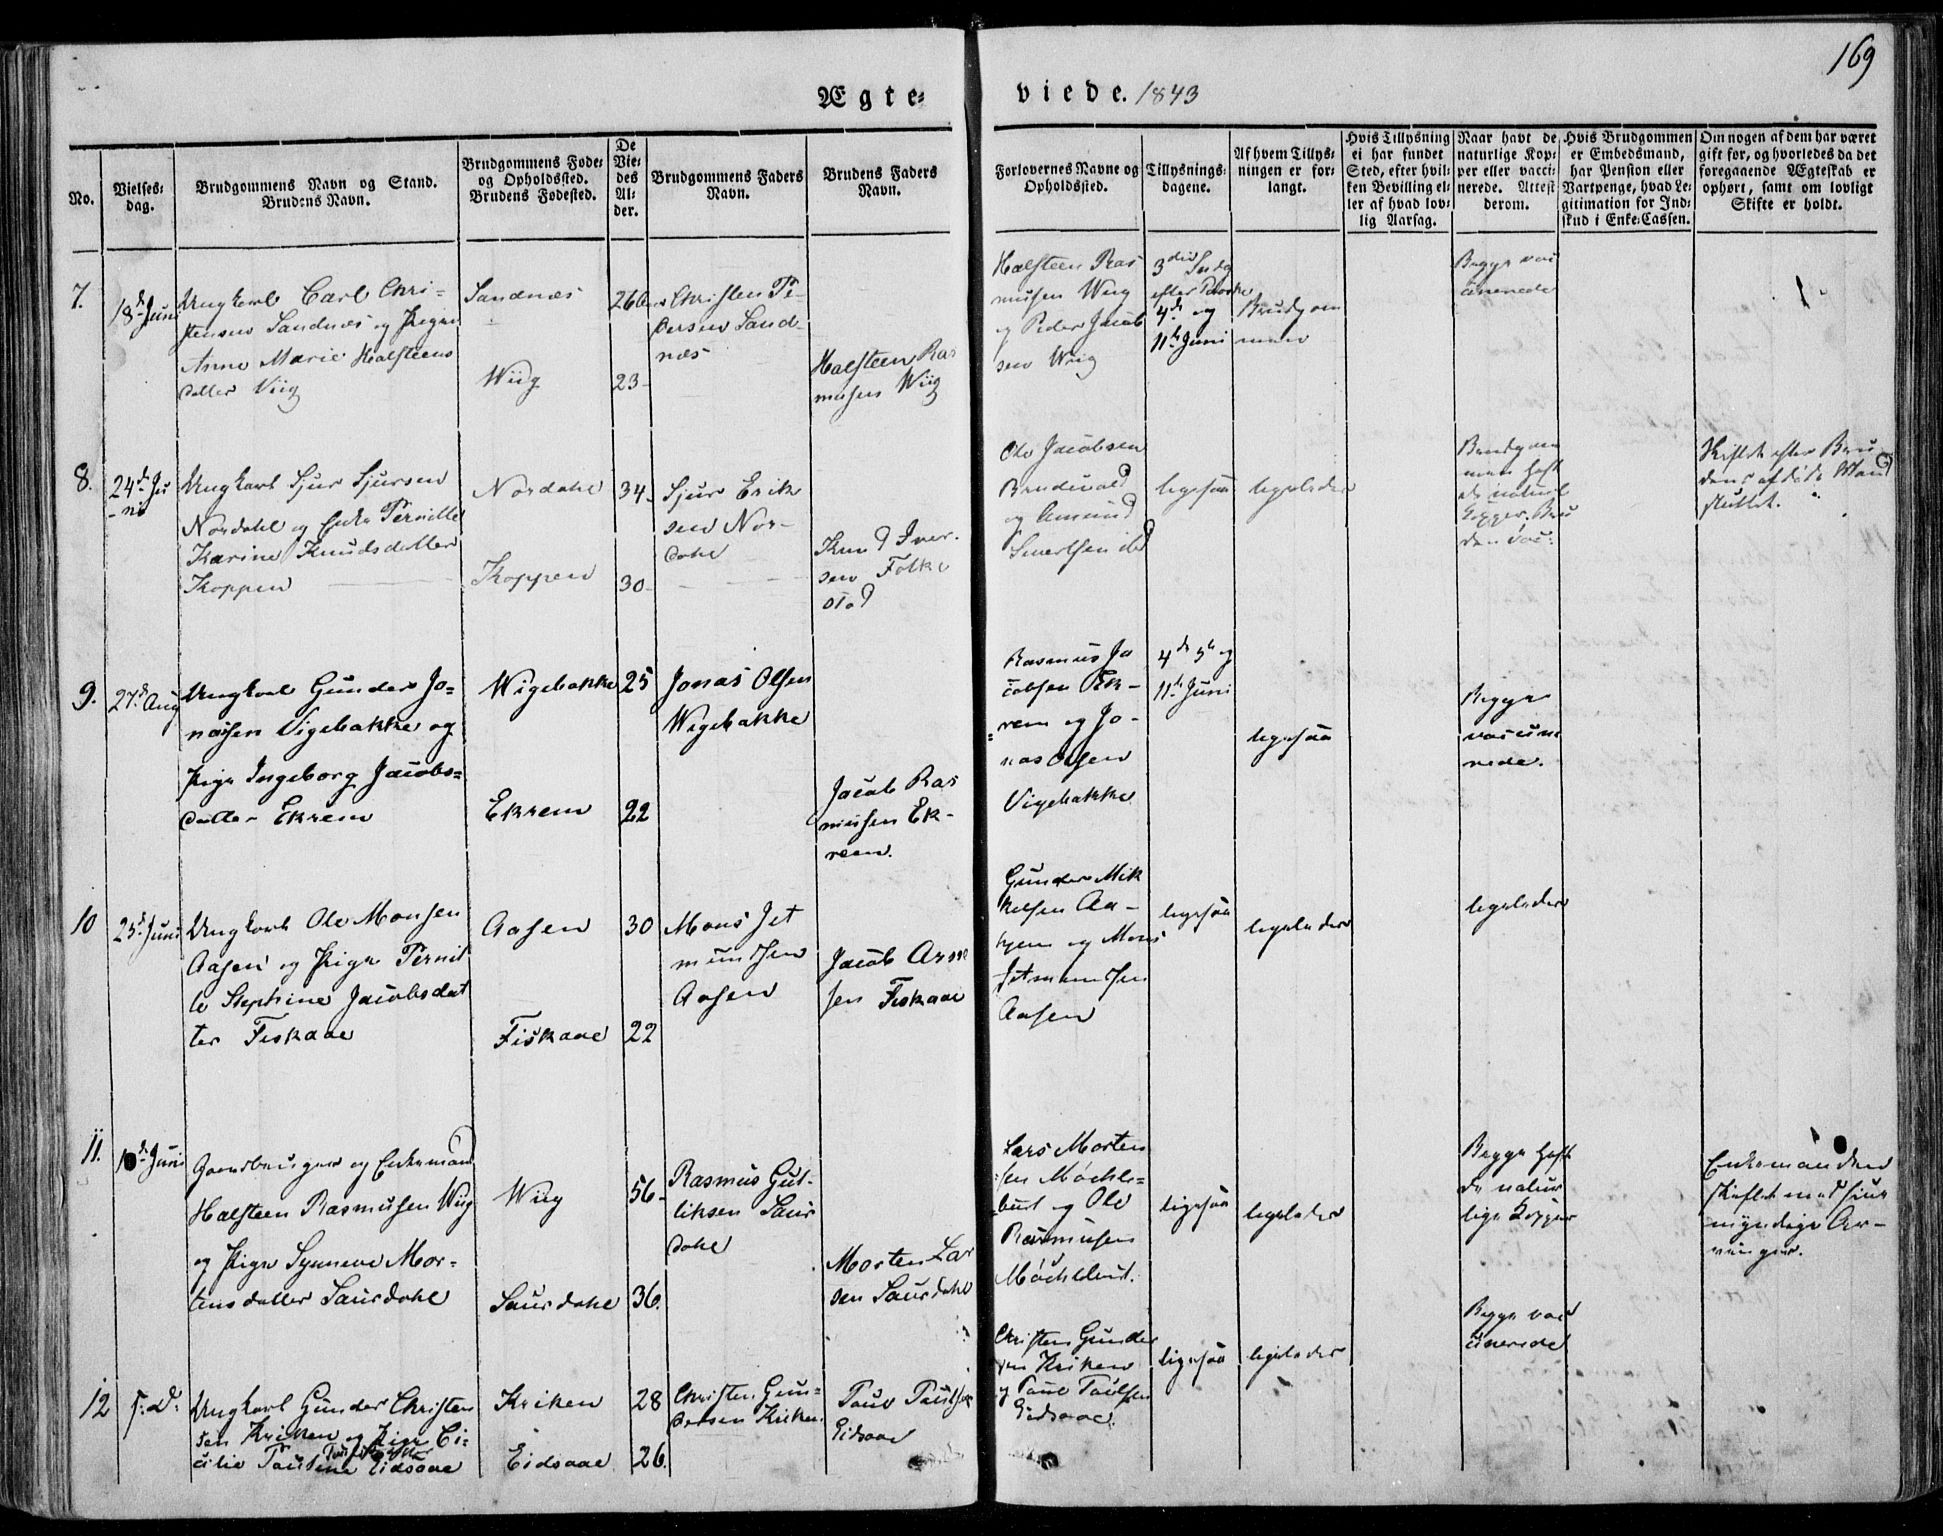 169
Ægte-
viede. 1843
No.
Vielses-
dag.
Brudgommens Navn og Stand.
Brudens Navn.
Brudgommens Føde-
og Opholdssted.
Brudens Fødested.
De
Vie-
des
Al-
der.
Brudgommens Faders
Navn.
Brudens Faders
Navn.
Forlovernes Navne og
Opholdssted.
Tillysnings-
dagene.
Af hvem Tillys-
ningen er for-
langt.
Hvis Tillysning
ei har fundet
Sted, efter hvil-
ken Bevilling el-
ler af hvad lov-
lig Aarsag.
Naar havt de
naturlige Kop-
per eller vacci-
nerede. Attest
derom.
Hvis Brudgommen
er Embedsmand,
har Pension eller
Vartpenge, hvad Le-
gitimation for Ind-
skud i Enke-Cassen.
Om nogen af dem har været
gift før, og hvorledes da det
foregaaende Ægteskab er
ophørt, samt om lovligt
Skifte er holdt.
7.
18d Juni
Ungkarl Carl Chri-
stensen Sandnæs og Pigen
Anne Marie Halsteens
datter Viig
Sandnæs
Wiig
26
23-
Christen Pe-
dersen Sand-
næs
Halsteen Ras
musen Wiig
Halsteen Ras
musen Wiig
og Peder Jacob
sen Wiig
3die Søndg
efter Paaske
4de og
11te Juni
Brudgom
men
Begge vac
cinerede
8.
24d Ju
-ni
Ungkarl Sjur Sjursen
Nordahl og Enke Pernille
Karine Knudsdatter
Koppen
Nordahl
Koppen
34-
30-
Sjur Erik
sen Nor-
dahl
Knud Iver-
sen Folke
stad
Ole Jacobsen
Brudevold
og Amund
Sivertsen ibd
ligesaa
ligeledes
Brudgom
men havt
de naturl
Kopper. Bru
den vac:
Skiftet efter Bru
dens afdøde Mand
sluttet.
9.
27d Aug
Ungkarl Gunder Jo-
nasen Vigebakke og
Pige Ingeborg Jacobs-
datter Ekrem
Wigebakke
Ekrem
25
22
Jonas Olsen
Wigebakke
Jacob Ras
musen Ek-
rem.
Rasmus Ja
cobsen Ek-
rem og Jo-
nas Olsen
Vigebakke
4de 5te og
11te Juni
ligesaa
Begge
vaccine
rede.
10
25d Juni
Ungkarl Ole Monsen
Aasen og Pige Pernil
le Stephine Jacobsdat
ter Fiskaae
Aasen
Fiskaae
30
22
Mons Jet
mundsen
Aasen
Jacob Arne
sen Fiskaae
Gunder Mik
kelsen Aa-
hjem og Mons
Jetmundsen
Aasen
ligesaa
ligeledes
ligeledes
11.
10d Juni
Gaardbruger og Enkemand
Halsteen Rasmusen Wiig
og Pige Synneve Mor-
tensdatter Saurdahl
Wiig
Saurdahl
56-
36.
Rasmus Gut-
liksen Saur
dahl
Morten Lar
sen Saurdahl
Lars Morten
sen Møchle-
bust og Ole
Rasmusen
Møchlebust.
ligesaa
ligeledes
Begge havt
de natur
lige Kopper
Enkemanden
skiftet med sine
myndige Ar-
vinger.
12
s: D:
Ungkarl Gunder Christen
sen Kriken og Pige Ci-
cilie Pauline Eidsaae
Kriken
Eidsaae
28
26.
Christen Gun-
dersen Kriken
Poul Poulsen
Eidsaae
Christen Gunder
sen Kriken
og Poul Poulsen
Eidsaae.
ligesaa
ligeledes
Begge vac
cinerede